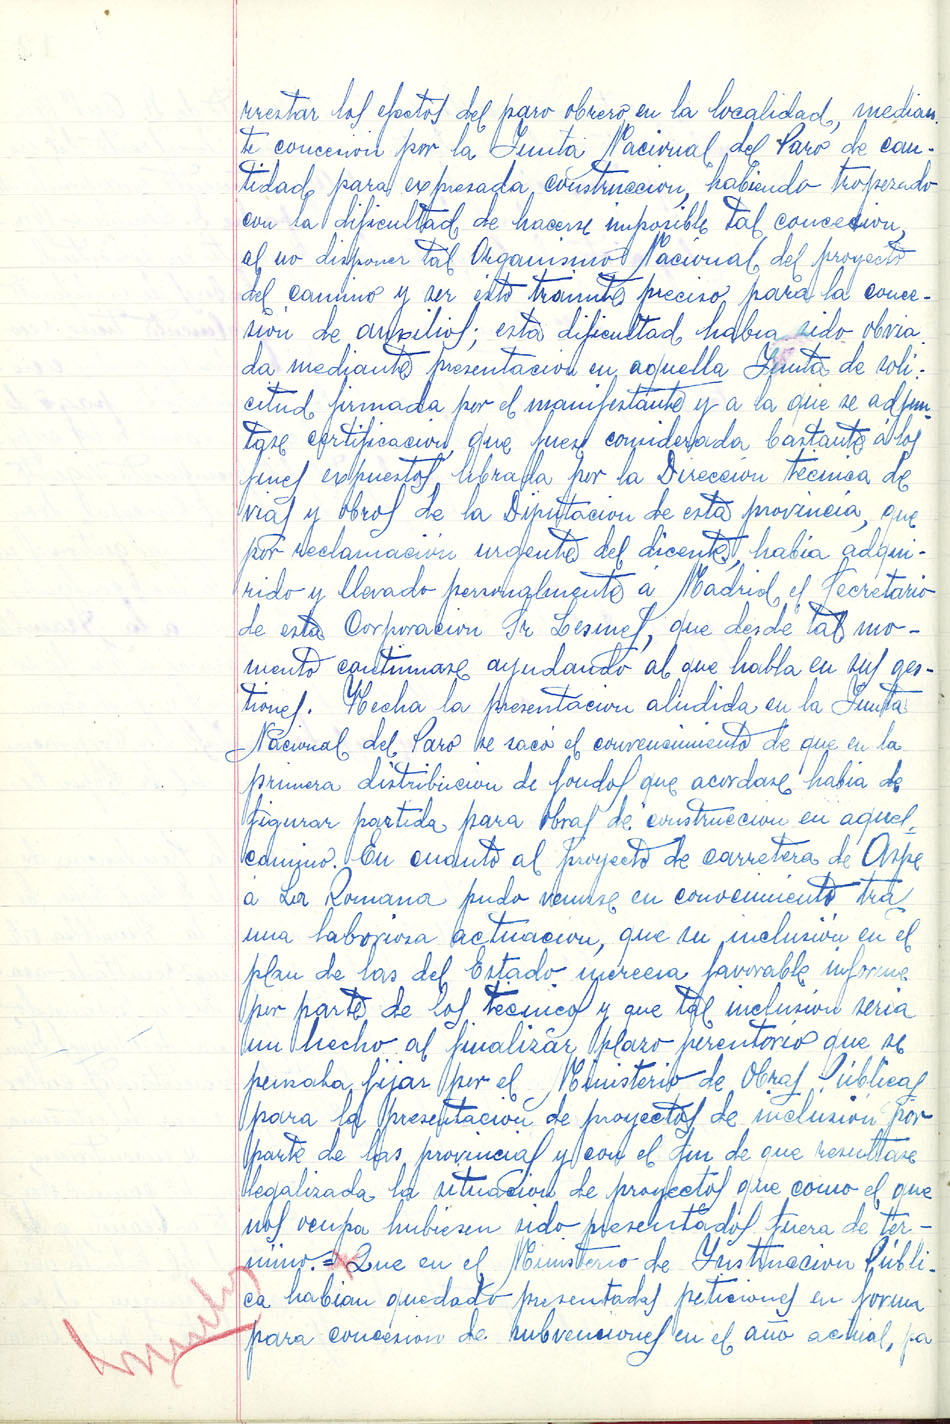 rrestar los efectos del paro obrero, en la localidad, median-
te concesion por la Junta Nacional del Paro de can-
tidad para expresada construccion, habiendo tropezado
con la dificultad de hacerse imposible tal concesion,
al no disponer tal Organismo Nacional del proyecto
del camino y ser esto tramite preciso para la conce-
sión de auxilios; esta dificultad habia sido obvia-
da mediante presentacion en aquella Junta de soli-
citud firmada por el manifestante y a la que se adjun-
tase certificacion, que fuese considerada bastante á los
fines expuestos, librada por la Direccion técnica de
vias y obras de la Diputacion de esta provincia, que
por reclamación urgente del dicente, habia adqui-
rido y llevado personalmente á Madrid el Secretario
de esta Corporacion Sr Lesmes, que desde tal mo-
mento continuase ayudando al que habla en sus ges-
tiones. Hecha la presentacion aludida en la Junta
Nacional del Paro se sacó el convencimiento de que en la
primera distribucion de fondos que acordase habia de
figurar partida para obras de construccion en aquel
camino. En cuanto al proyecto de carretera de Aspe
á La Romana pudo venirse en conocimiento tra
una laboriosa actuacion, que su inclusión en el
plan de las del Estado merecia favorable informe
por parte de los técnicos y que tal inclusión seria
un hecho al finalizar plazo perentorio que se
pensaba fijar por el Ministerio de Obras Públicas
para la presentacion de proyectos de inclusión por
parte de las provincias y con el fin de que resultase
legalizada la situacion de proyectos que como el que
nos ocupa hubiesen sido presentados fuera de tér-
mino.= Que en el Ministerio de Instruccion Públi-
ca habian quedado presentadas peticiones en forma
para concesion de subvenciones en el año actual, pa